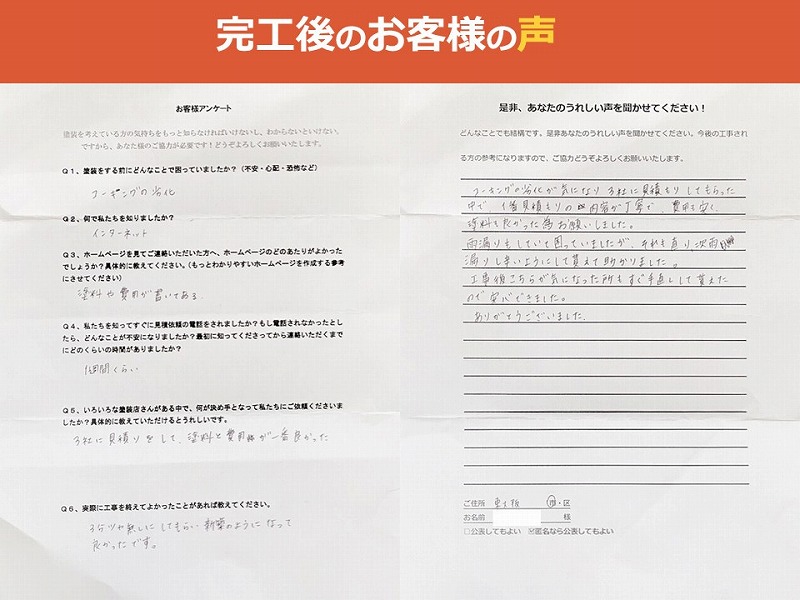 完工後のお客様の声
お客様アンケート
塗装を考えている方の気持ちをもっと知らなければいけないし、わからないといけない。
ですから、あなた様のご協力が必要です！どうぞよろしくお願いいたします。
Q1、塗装をする前にどんなことで困っていましたか？（不安・心配・恐怖など）
コーキングの劣化
Q2、何で私たちを知りましたか？
インターネット
Q3、ホームページを見てご連絡いただいた方へ、ホームページのどのあたりがよかった
でしょうか？具体的に教えてください。（もっとわかりやすいホームページを作成する参考
にさせてください）
塗料や費用が書いてある
Q4、私たちを知ってすぐに見積依頼の電話をされましたか？もし電話されなかったとし
たら、どんなことが不安になりましたか？最初に知ってくださってから連絡いただくまで
にどのくらいの時間がありましたか？
1週間くらい
Q5、いろいろな塗装店さんがある中で、何が決め手となって私たちにご依頼くださいま
したか？具体的に教えていただけるとうれしいです。
3社に見積りをして、塗料と費用が一番良かった
Q6、実際に工事を終えてよかったことがあれば教えてください。
3分ツヤ無しにしてもらい新築のようになって
良かったです。
是非、あなたのうれしい声を聞かせてください！
どんなことでも結構です。是非あなたのうれしい声を聞かせてください。今後の工事され
る方の参考になりますので、ご協力どうぞよろしくお願いいたします。
コーキングの劣化が気になり3社に見積もりしてもらった
中で、1番見積もりの内容が丁寧で、費用も安く、
塗料も良かった為お願いしました。
雨漏りもしていて困っていましたが、それも直り次雨
漏りし辛いようにして貰えて助かりました。
工事後こちらが気になった所もすぐ手直しして貰えた
ので安心できました。
ありがとうございました。
ご住所 東大阪 市・区
お名前 様
□公表してもよい ☑匿名なら公表してもよい